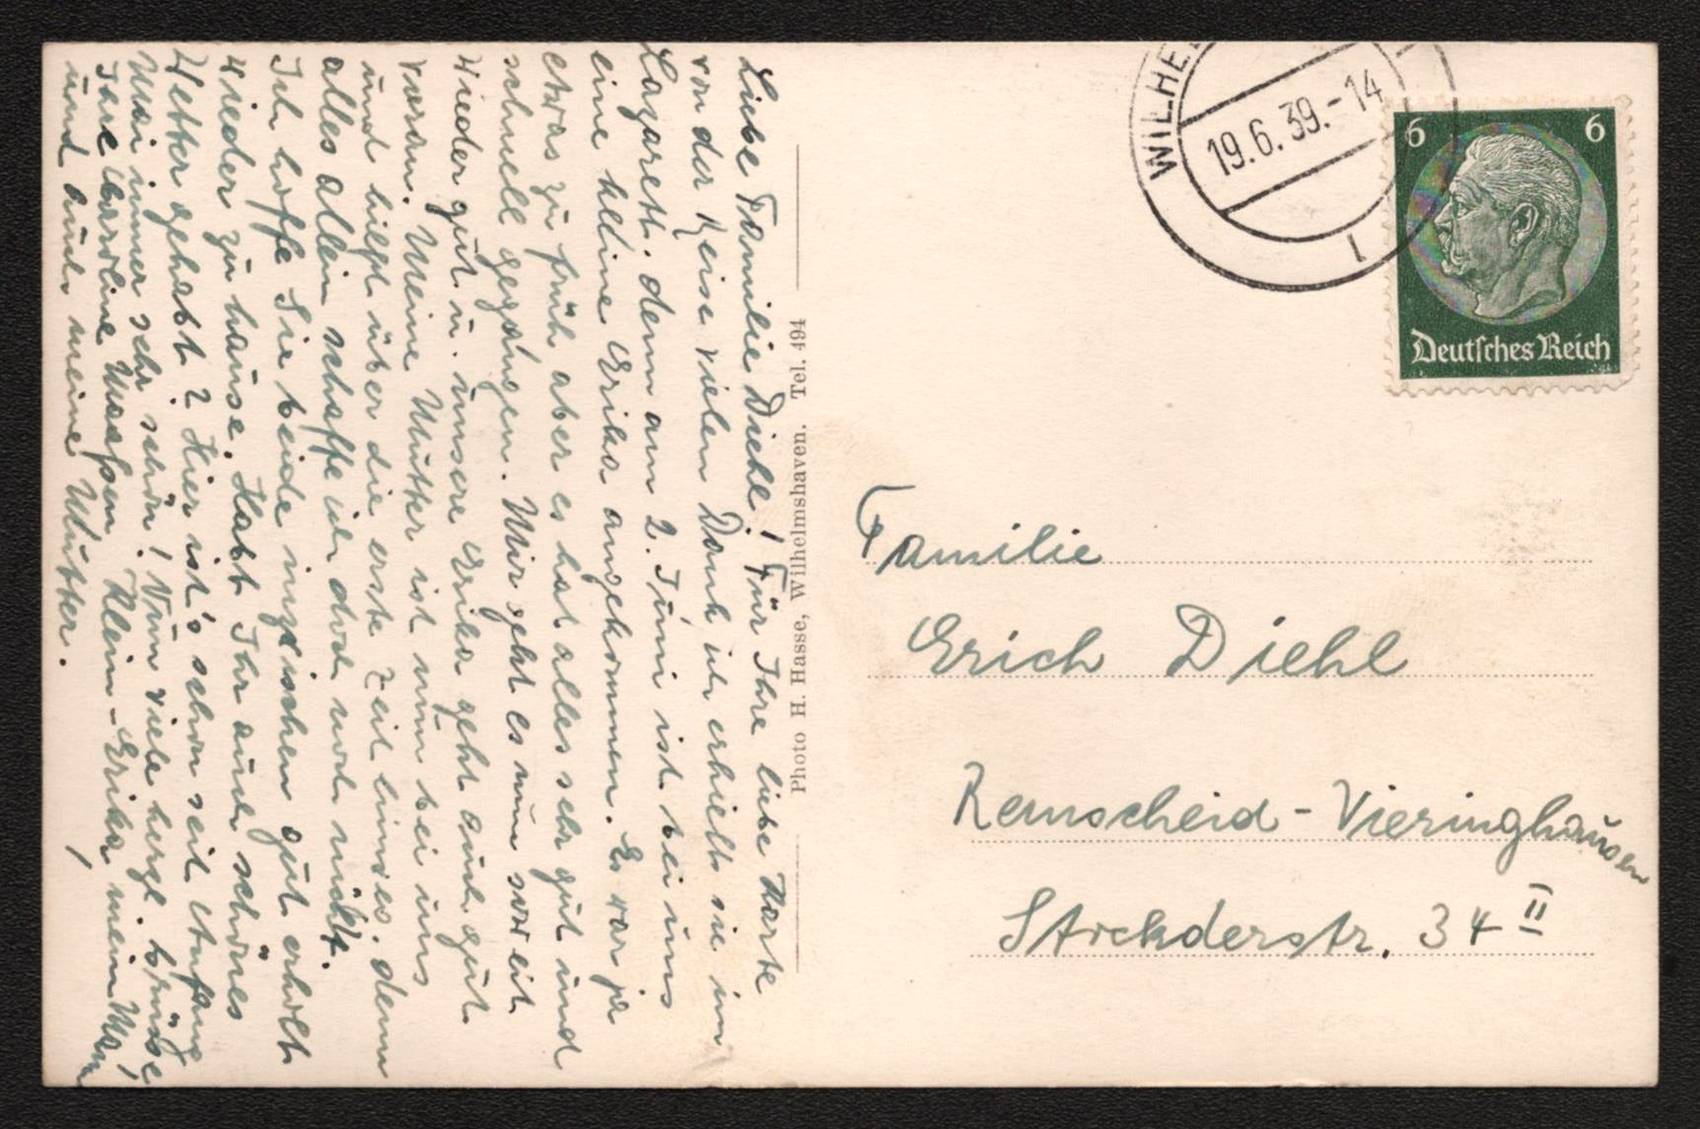 Liebe Familie Diehl! Für Ihre liebe Karte
von der Reise vielen Dank ich erhielt sie im
Lazarett. denn am 2. Juni ist bei uns
eine kleine Erika angekommen. Es war ja
etwas zu früh aber es hat alles sehr gut und
schnell gegangen. Mir geht es nun soweit
wieder gut u. unsere Erika geht auch gut
voran. Meine Mutter ist nun bei uns
und hilft über die erste Zeit hinweg. denn
alles allein schaffe ich doch noch nicht.
Ich hoffe Sie beide inzwischen gut erholt
wieder zu hause. Habt Ihr auch schönes
Wetter gehabt? Hier ist's schon seit Anfang
Mai immer sehr schön! Nun viele herzl. Grüsse
Ihre Karoline Klein-Erika mein Mann
und auch meine Mutter.
Photo H. Hasse, Wilhelmshaven. Tel. 494
WILHE
19.6.39.-14
1
6 6
Deutsches Reich
Familie
Erich Diehl
Remscheid - Vieringhausen
34 II